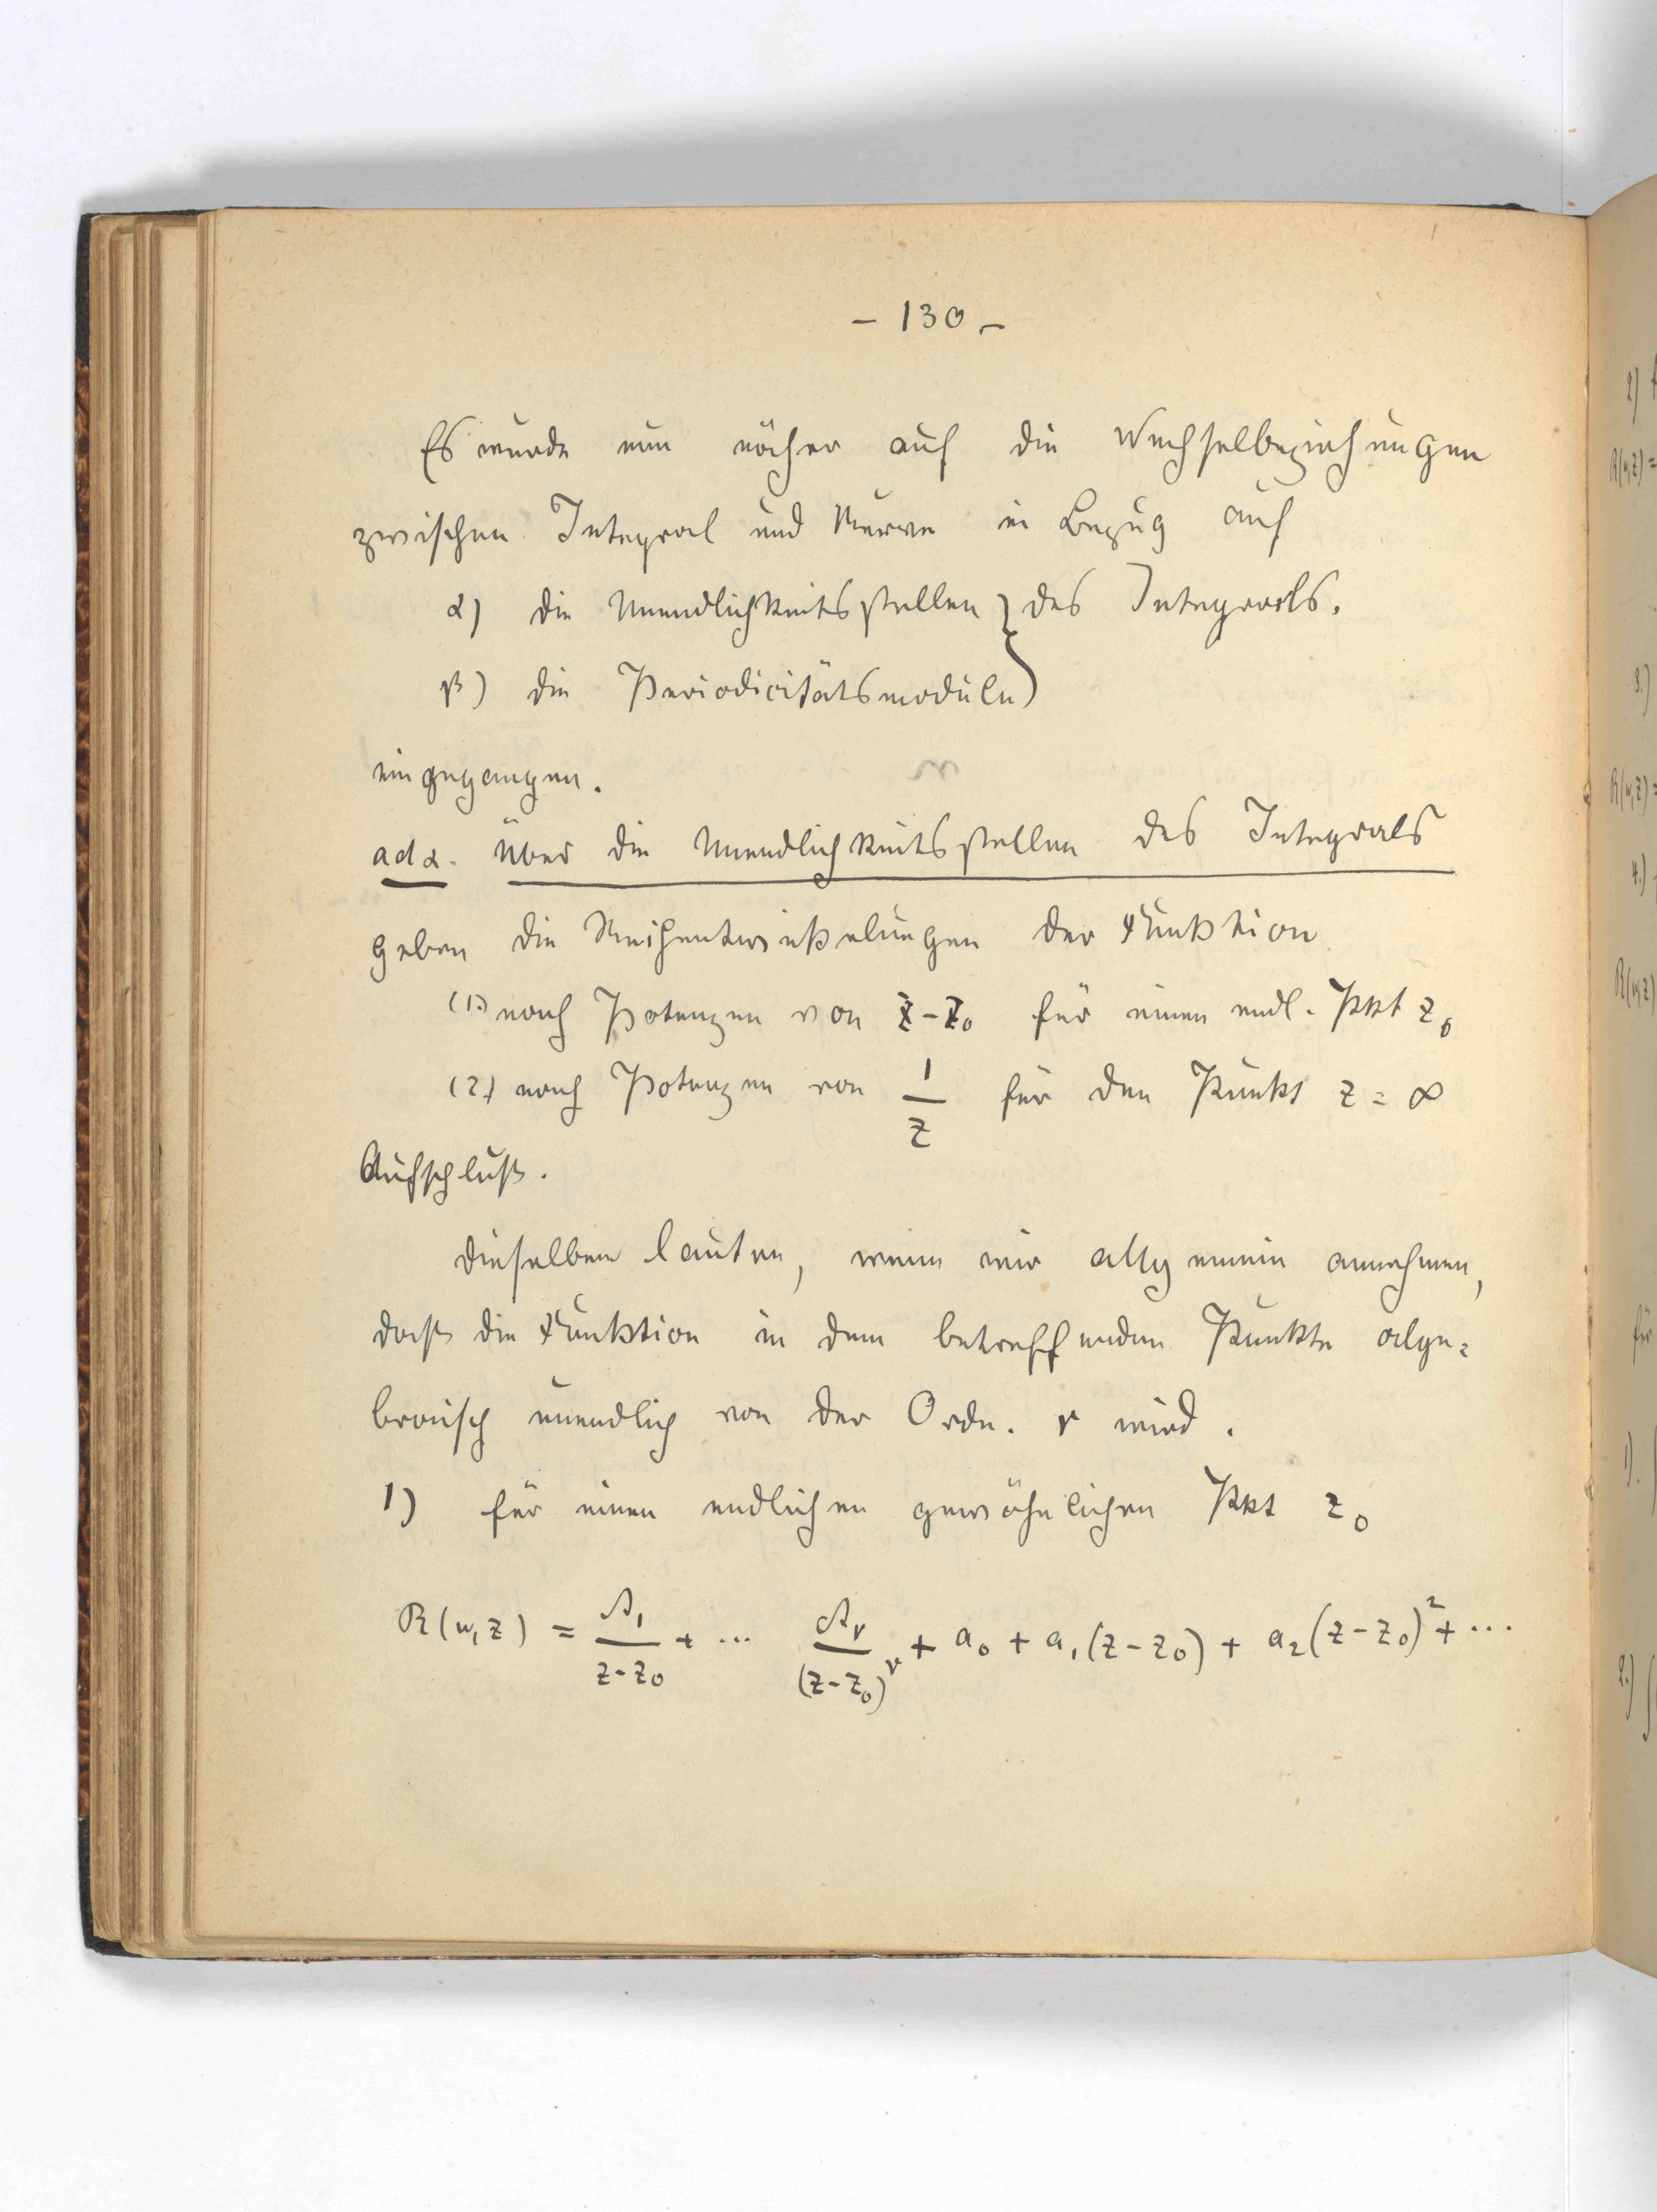 - 130 -
Es wurde nun näher auf die Wechselbeziehungen
zwischen Integral und Kurve in Bezug auf
α) die Unendlichkeitsstellen } des Integrals.
β) die Periodicitätsmoduln }
eingegangen.
ad α. Über die Unendlichkeitsstellen des Integrals
geben die Reihentwickelungen der Funktion
(1.) nach Potenzen von z-z₀ für einen endl. Pkt z₀
(2.) nach Potenzen von 1/z für den Punkt z = ∞
Aufschluß.
Dieselben lauten, wenn wir allgemein annehmen,
daß die Funktion in dem betreffenden Punkte alge=
braisch unendlich von der Ordn. ν wird.
1) für einen endlichen gewöhnlichen Pkt z₀
R(w,z) = A₁/(z-z₀) + ... Aᵥ/(z-z₀)^ν + a₀ + a₁(z-z₀) + a₂(z-z₀)² + ...
2)
R(w,z) =
3.)
R(w,z) =
4.)
R(w,z)
für
1).
2.) ∫